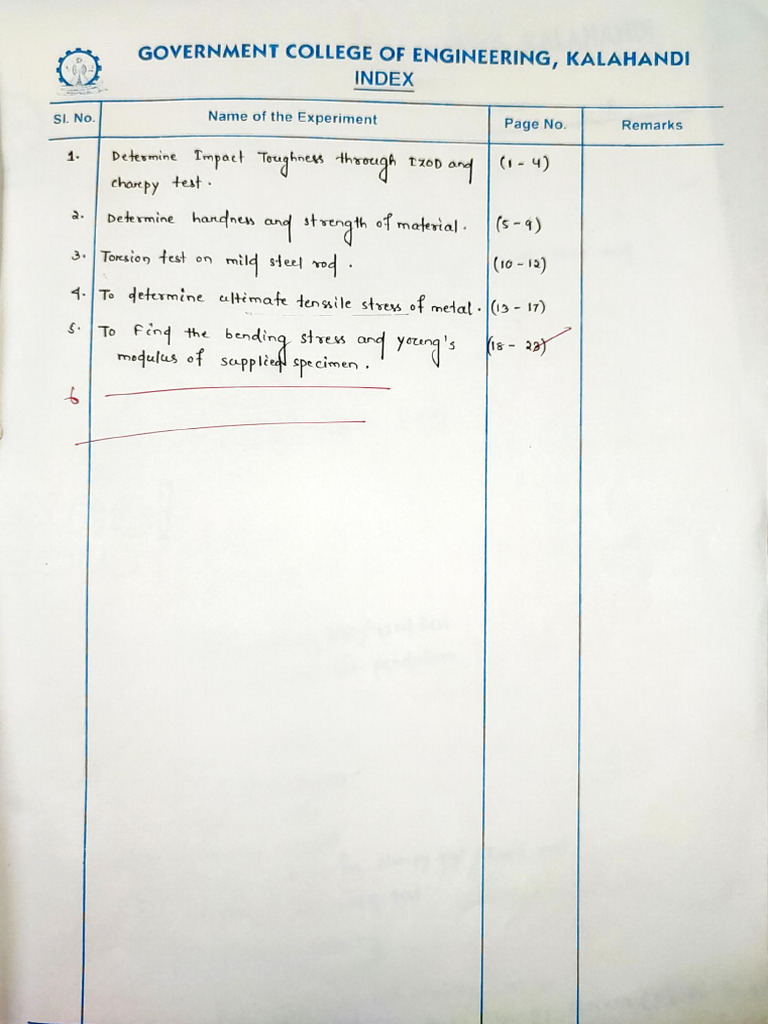 GOVERNMENT COLLEGE OF ENGINEERING, KALAHANDI
INDEX
Sl. No. Name of the Experiment Page No. Remarks
1. Determine Impact Toughness through IZOD and (1 - 4)
charpy test.
2. Determine hardness and strength of material. (5 - 9)
3. Torsion test on mild steel rod. (10 - 12)
4. To determine ultimate tenssile stress of metal. (13 - 17)
5. To Find the bending stress and young's (18 - 23)
modulus of supplied specimen.
6